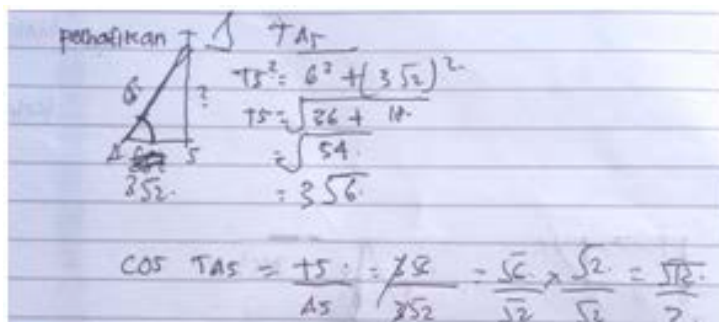 perhatikan T Δ TAS
6 ?
A S
3√2
TS² = 6² + (3√2)²
TS = √36 + 18
= √54
= 3√6
COS TAS = TS / AS = 3√6 / 3√2 = √6 / √2 × √2 / √2 = √12 / 2